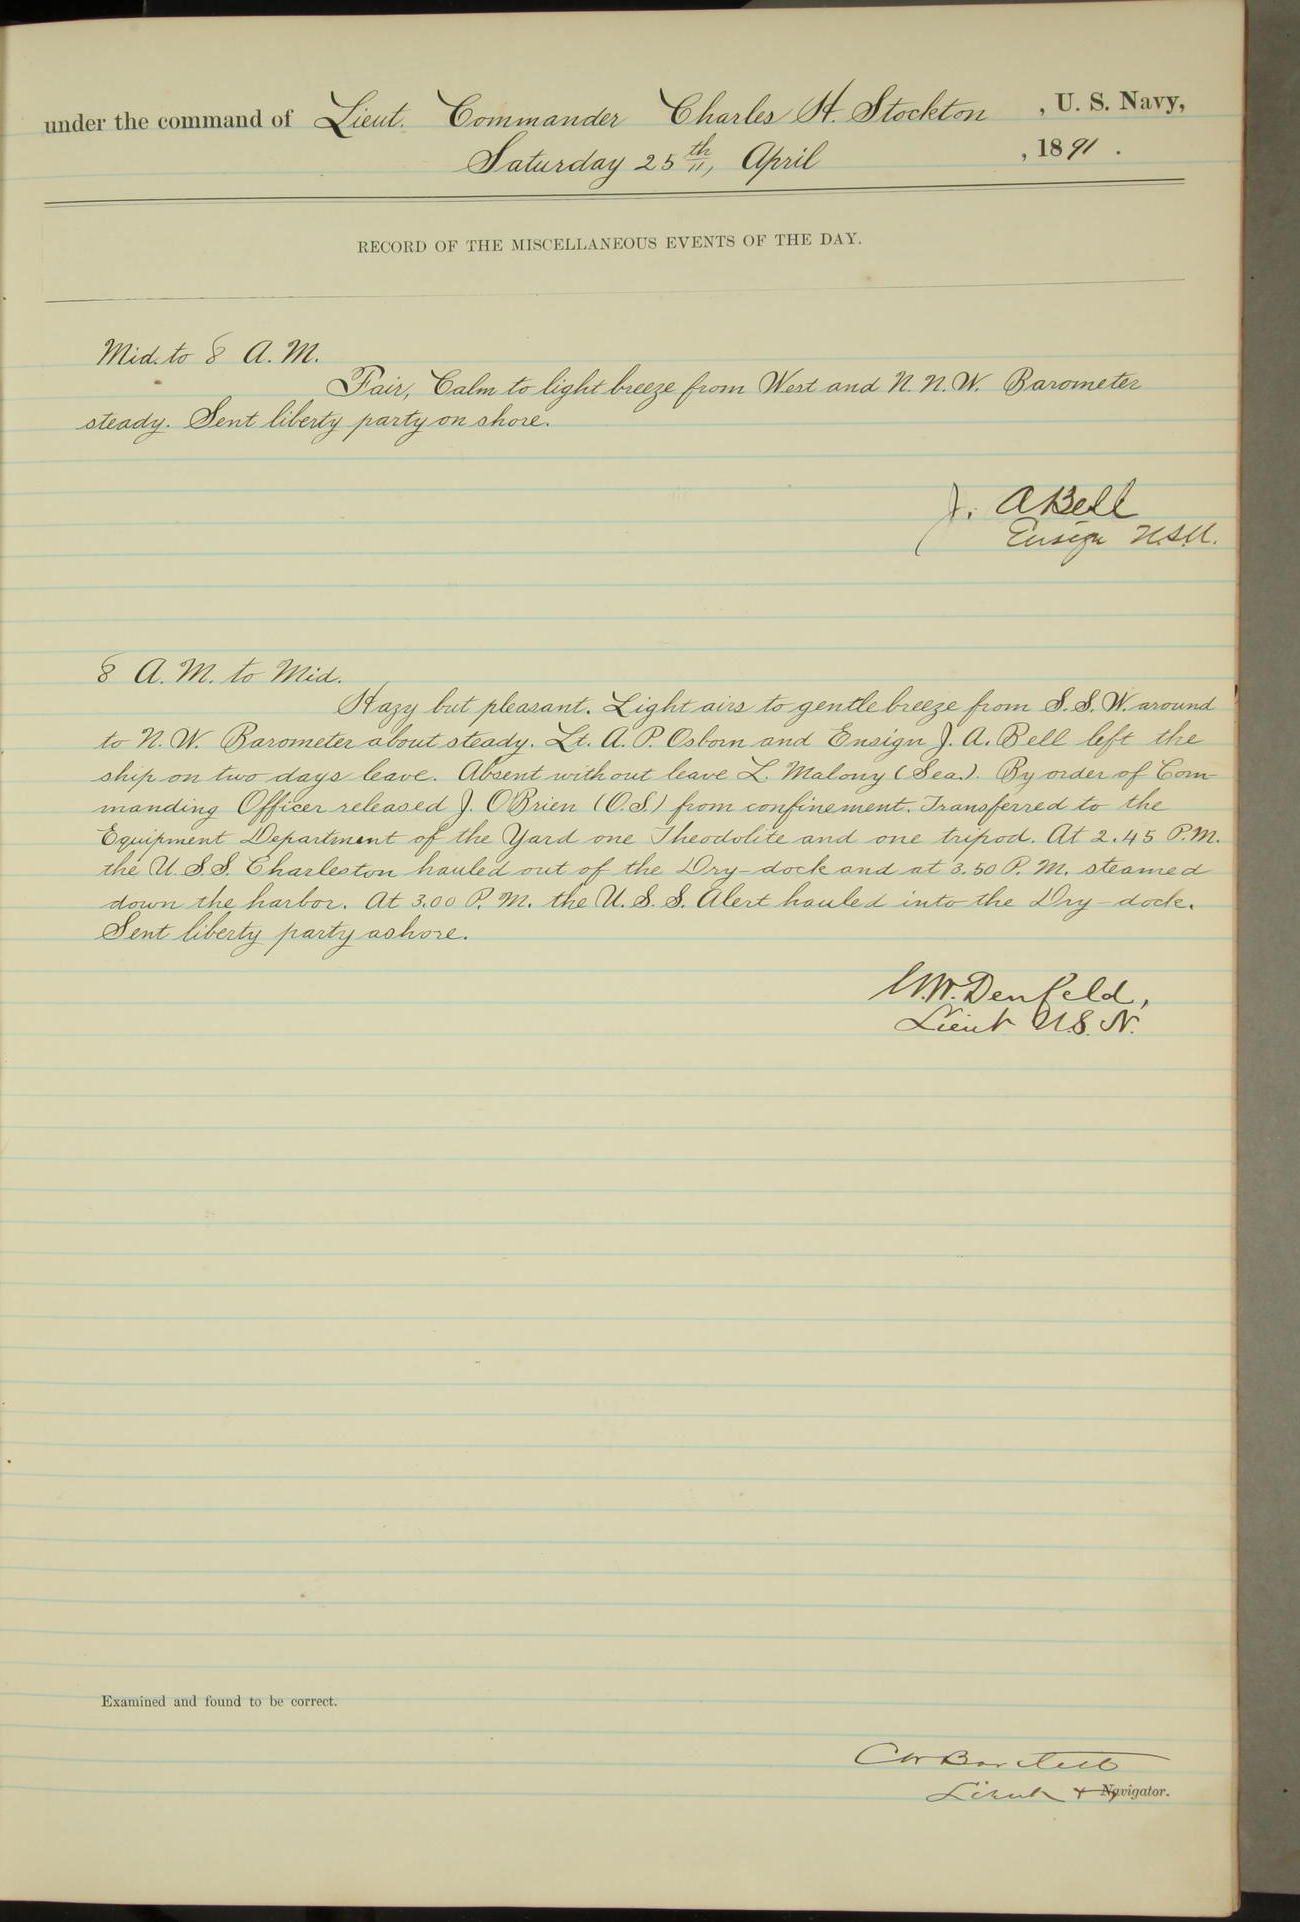 under the command of Lieut. Commander Charles H. Stockton, U. S. Navy,
Saturday 25th, April, 1891.
RECORD OF THE MISCELLANEOUS EVENTS OF THE DAY.
Mid. to 8 A. M.
Fair, Calm to light breeze from West and N. N. W. Barometer
steady. Sent liberty party on shore.
J. A Bell
Ensign U.S.N.
8 A. M. to Mid.
Hazy but pleasant. Light airs to gentle breeze from S. S. W. around
to N. W. Barometer about steady. Lt. A. P. Osborn and Ensign J. A. Bell left the
ship on two days leave. Absent without leave L. Malony (Sea.). By order of Com-
manding Officer released J. O'Brien (O.S.) from confinement. Transferred to the
Equipment Department of the Yard one Theodolite and one tripod. At 2.45 P.M.
the U. S. S. Charleston hauled out of the Dry-dock and at 3.50 P. M. steamed
down the harbor. At 3.00 P. M. the U. S. S. Alert hauled into the Dry-dock.
Sent liberty party ashore.
G.W. Denfeld,
Lieut U.S. N.
Examined and found to be correct.
C W Bartlett
Lieut & Navigator.